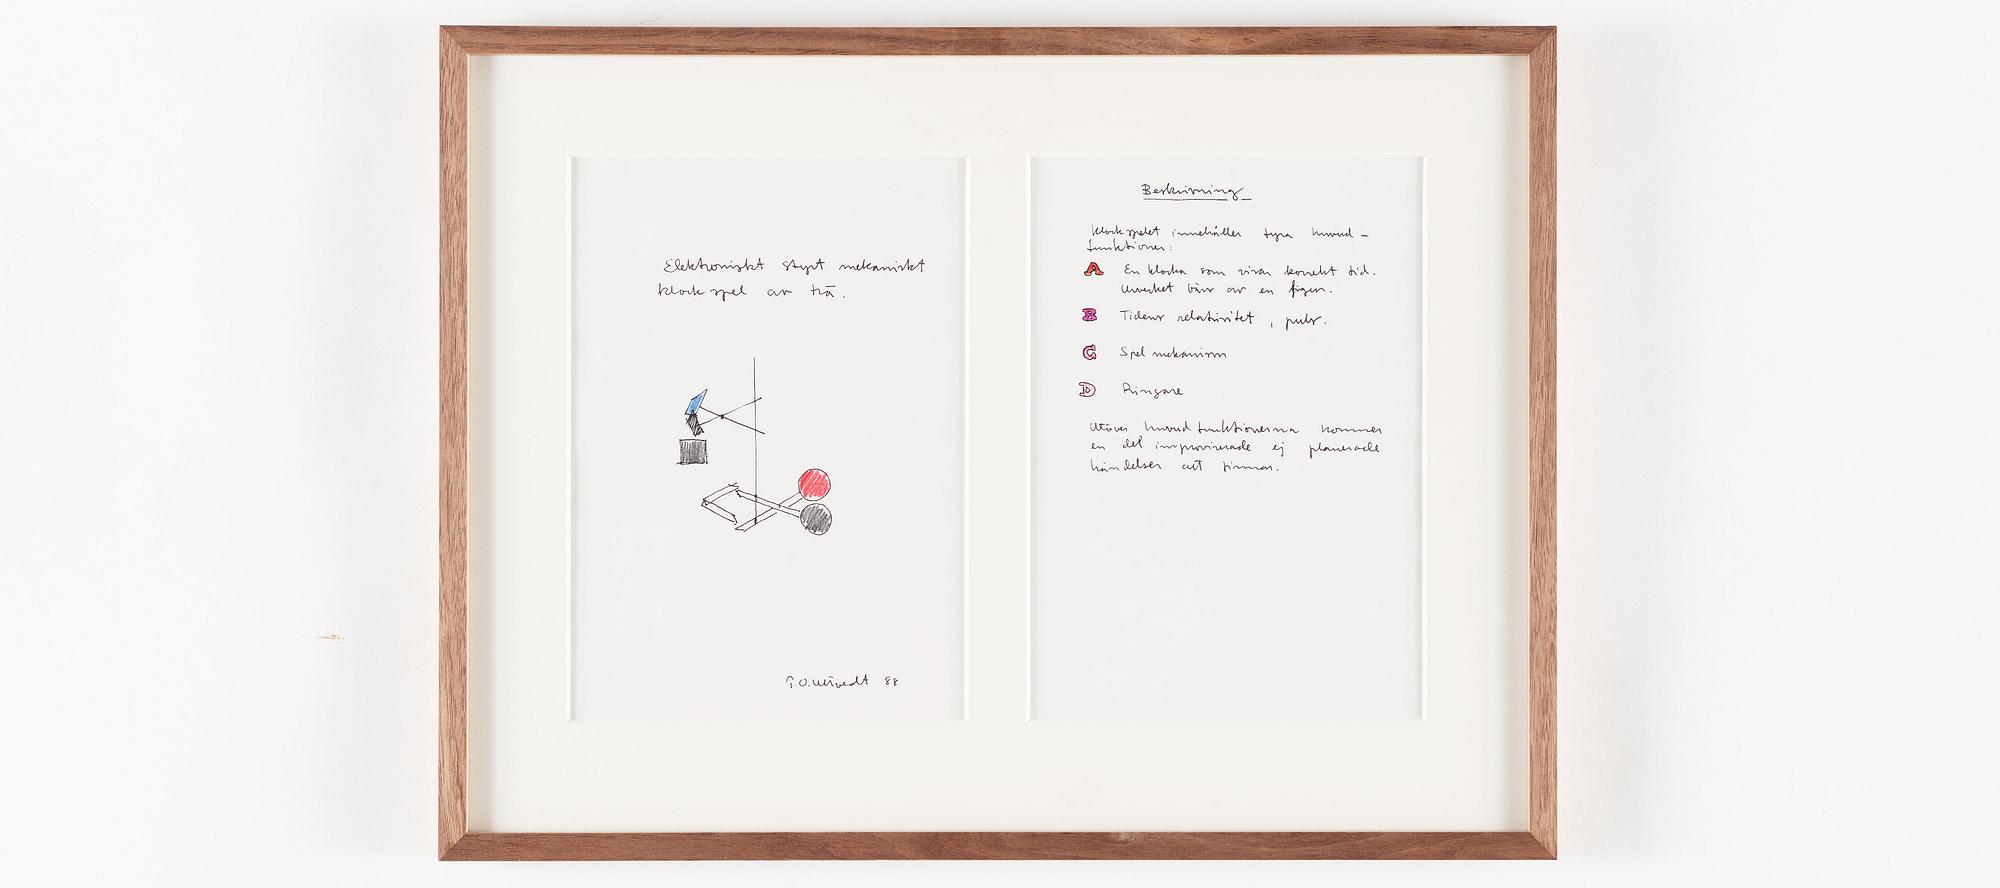 Elektroniskt styrt mekaniskt
klockspel av trä.
P.O. Ultvedt 88
Beskrivning
Klockspelet innehåller fyra huvud-
funktioner:
A En klocka som visar korrekt tid.
Urverket bärs av en figur.
B Tidens relativitet, puls.
C Spelmekanism
D Ringare
Utöver huvudfunktionerna kommer
en del improviserade ej planerade
händelser att finnas.